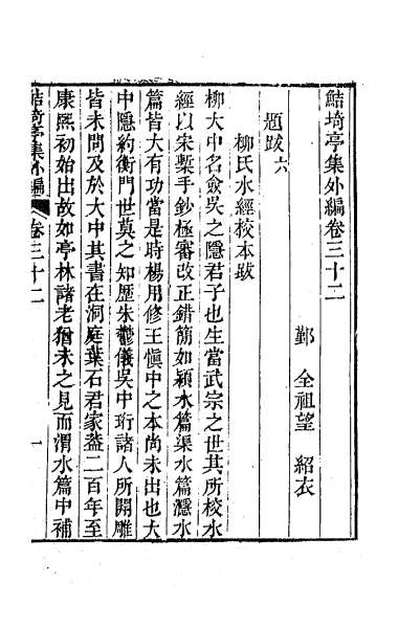 鮚埼亭集外編卷三十二
鄞 全祖望 紹衣
題跋六
柳氏水經校本跋
柳大中名僉吳之隱君子也生當武宗之世其所校水
經以宋槧手鈔極審改正錯筋如潁水篇渠水篇㶏水
篇皆大有功當是時楊用修王慎中之本尚未出也大
中隱約衡門世莫之知歷朱鬱儀吳中珩諸人所開雕
皆未問及於大中其書在洞庭葉石君家盖二百年至
康熙初始出故如亭林諸老猶未之見而渭水篇中補
鮚埼亭集外編 卷三十二 一